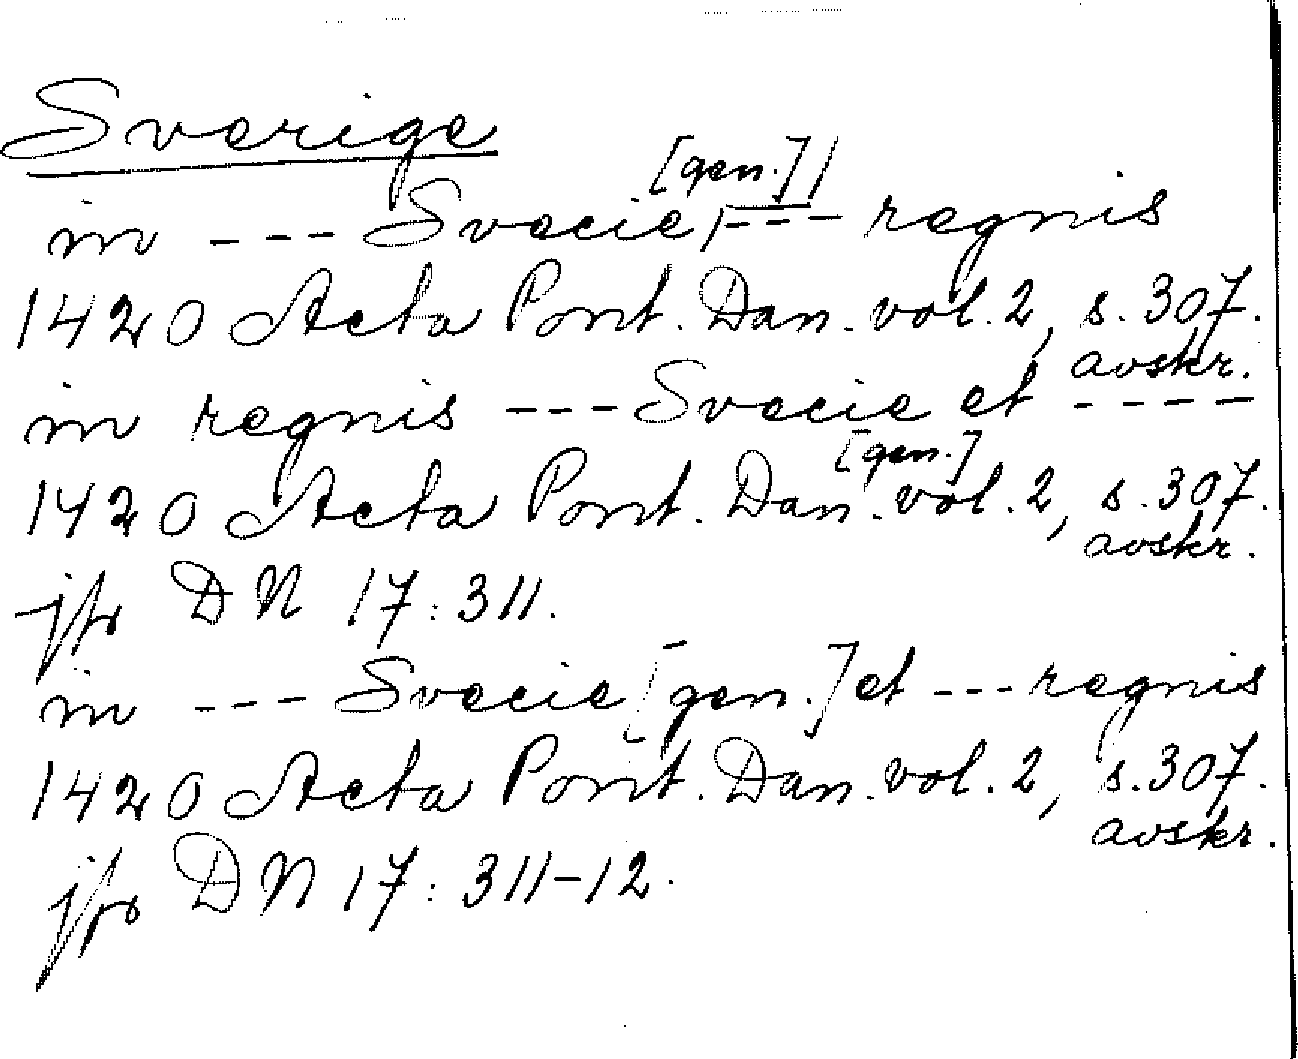 Sverige
in --- Svecie [gen.] --- regnis
1420 Acta Pont. Dan. vol. 2, s. 307.
avskr.
in regnis --- Svecie et ----
[gen.]
1420 Acta Pont. Dan. vol. 2, s. 307.
avskr.
jfr DN 17:311.
in --- Svecie [gen.] et --- regnis
1420 Acta Pont. Dan. vol. 2, s. 307.
avskr.
jfr DN 17: 311-12.